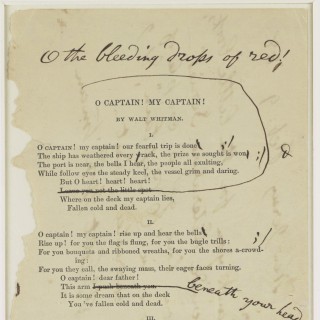 O the bleeding drops of red!
O CAPTAIN! MY CAPTAIN!
BY WALT WHITMAN.
I.
O CAPTAIN! my captain! our fearful trip is done
The ship has weathered every rack, the prize we sought is won
The port is near, the bells I hear, the people all exulting,
While follow eyes the steady keel, the vessel grim and daring.
But O heart! heart! heart!
Leave you not the little spot
Where on the deck my captain lies,
Fallen cold and dead.
II.
O captain! my captain! rise up and hear the bells
Rise up! for you the flag is flung, for you the bugle trills:
For you bouquets and ribboned wreaths, for you the shores a-crowd-
ing:
For you they call, the swaying mass, their eager faces turning.
O captain! dear father!
This arm I push beneath you beneath your head
It is some dream that on the deck
You 've fallen cold and dead.
III.